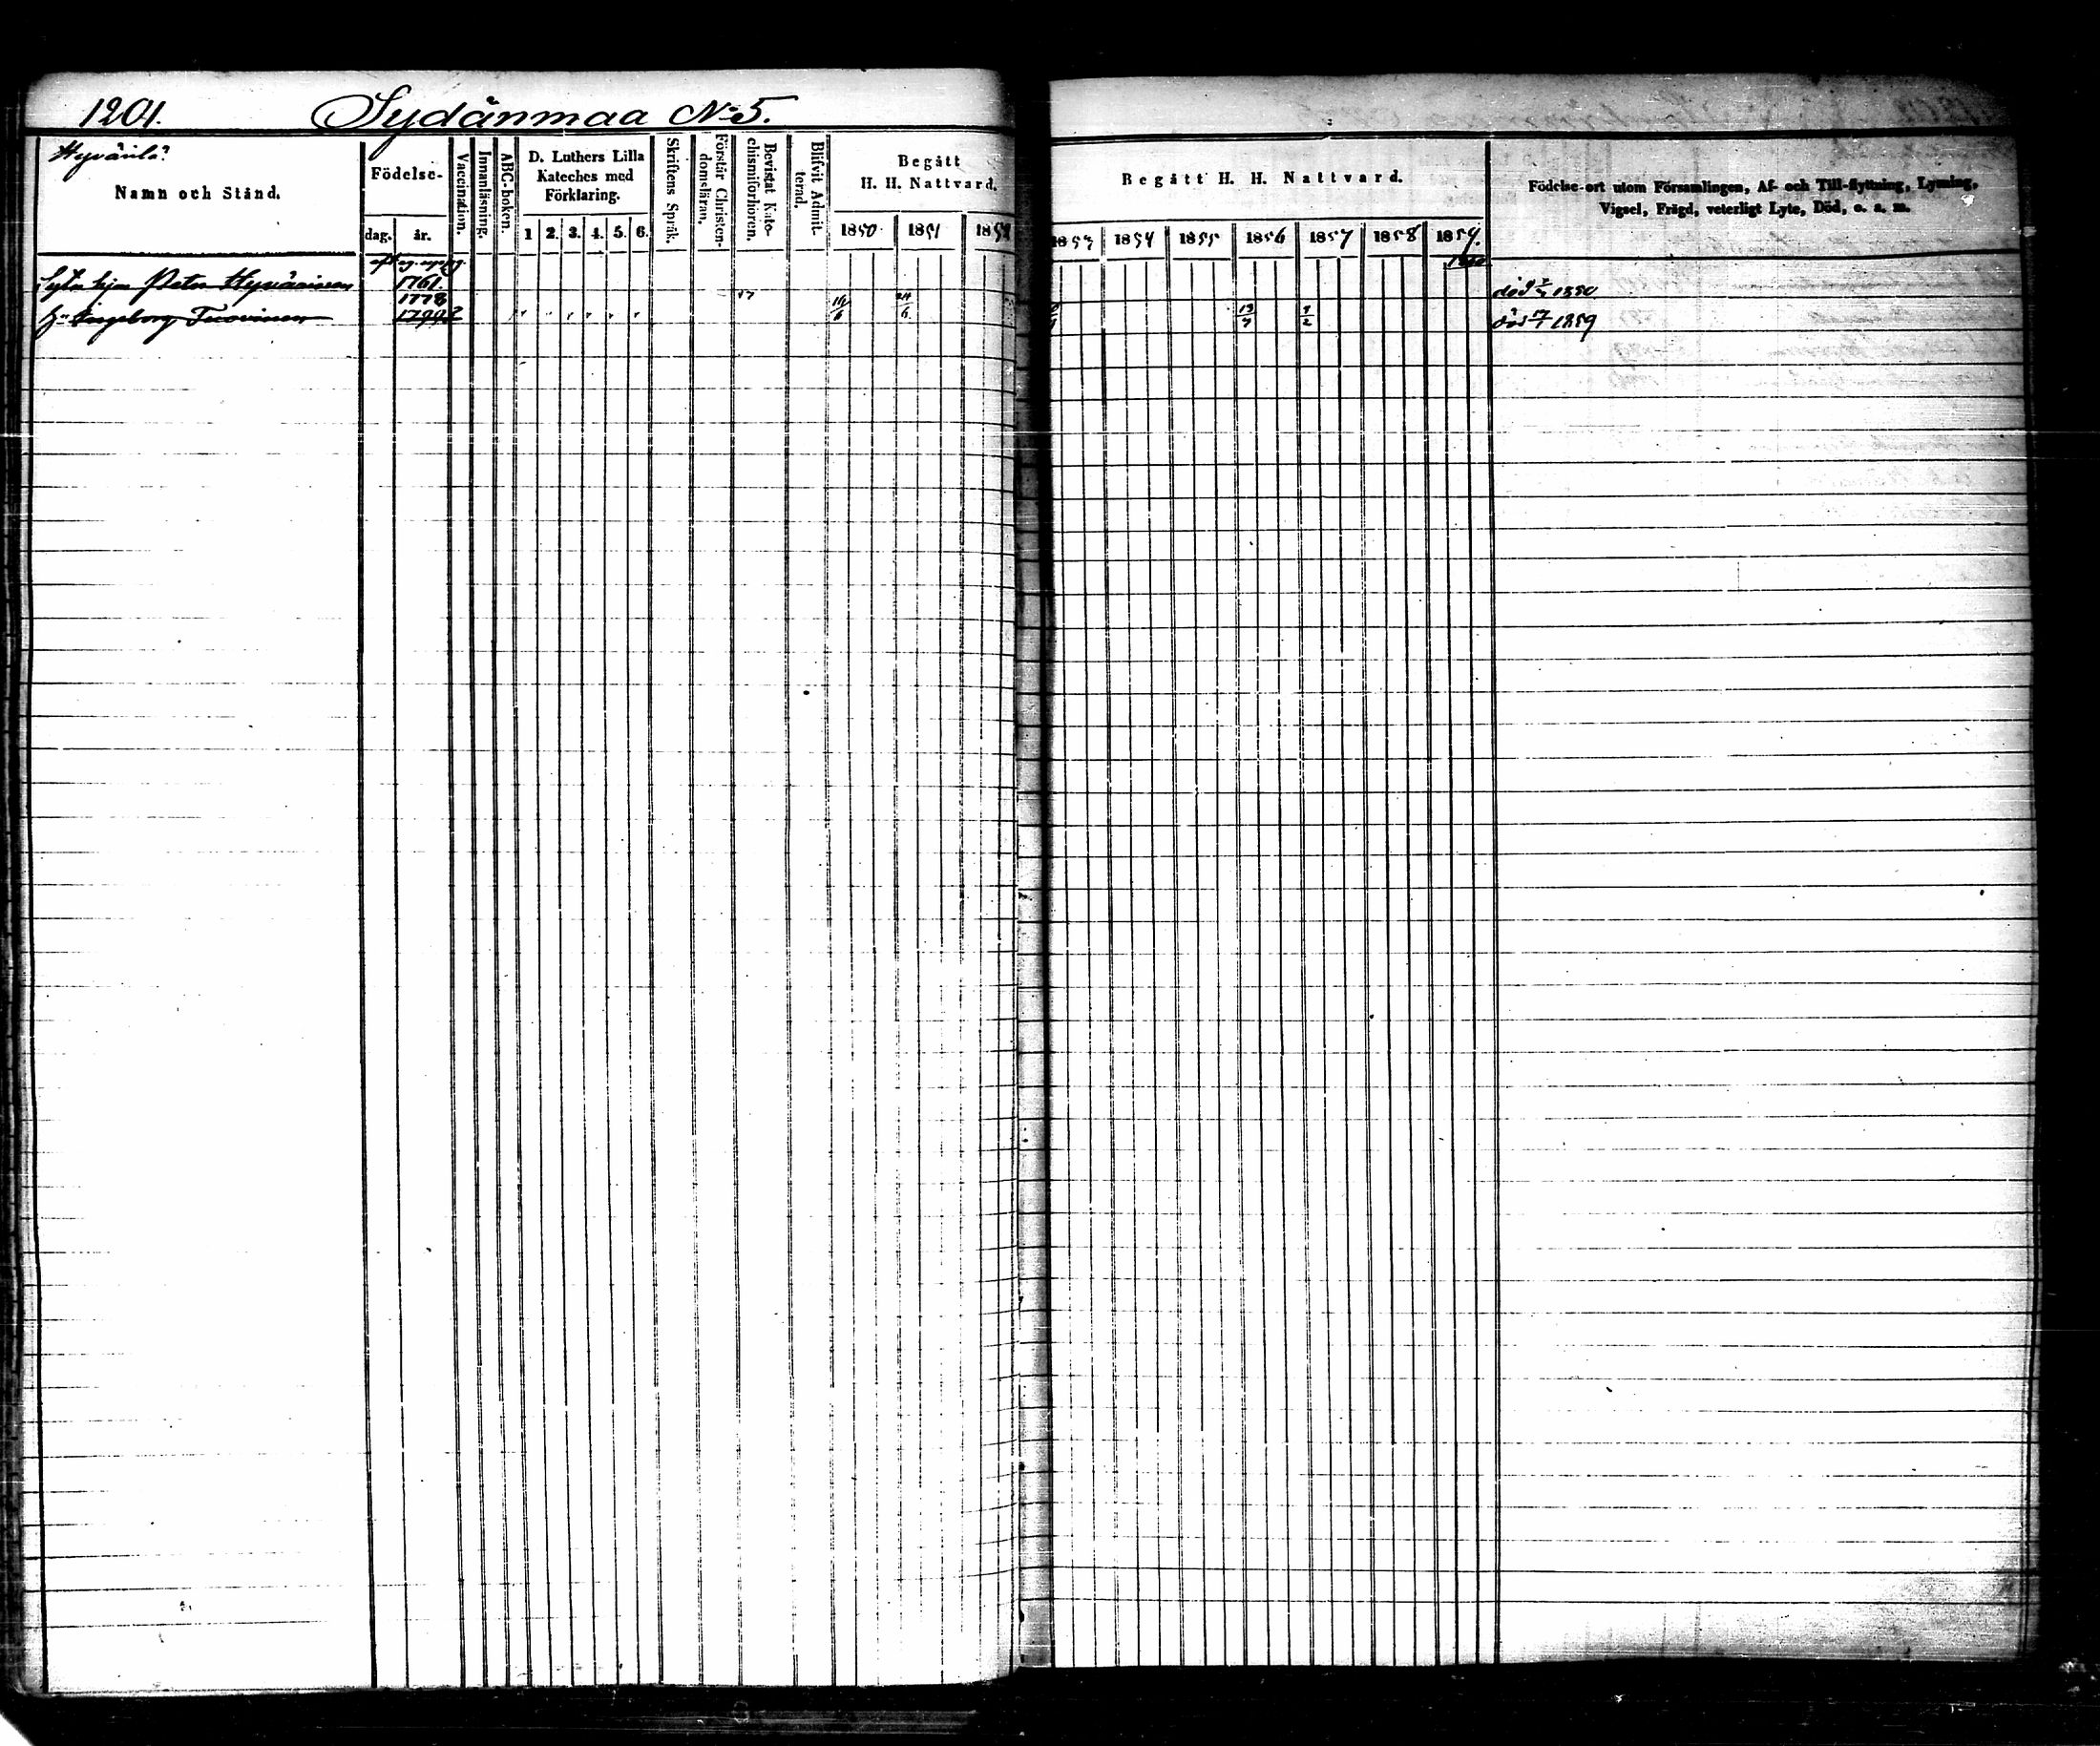 1201. Sydänmaa No 5.
Hyvärilä?
Namn och Stånd.
Födelse-
dag. år.
Vaccination.
Innanläsning.
ABC-boken.
D. Luthers Lilla
Kateches med
Förklaring.
1 2. 3. 4. 5. 6.
Skriftens Språk.
Förstår Christen-
domsläran,
Bevistat Kate-
chismiförhören.
Blifvit Admit-
terad.
Begått
H. H. Nattvard.
1850 1851 1852
Peter Hyväirinen 1761
1778
Hu Ingeborg Tuovinen 17992 " " " " " " 16/6 24/6
Begått H. H. Nattvard.
1853 1854 1855 1856 1857 1858 1859.
1860
Födelse-ort utom Församlingen, Af- och Till-flyttning, Lysning,
Vigsel, Frägd, veterligt Lyte, Död, o. s. m.
död 1850
13/7 1/2 död 17/7 1859